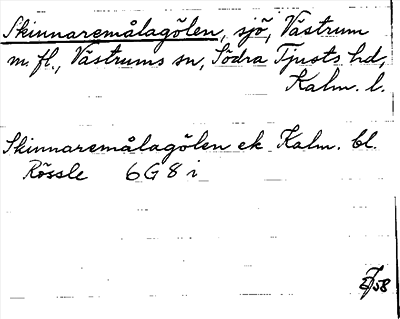 Skinnaremålagölen, sjö, Västrum
m. fl., Västrums sn, Södra Tjusts hd,
Kalm. l.
Skinnaremålagölen ek Kalm. bl.
Rössle 6G8i